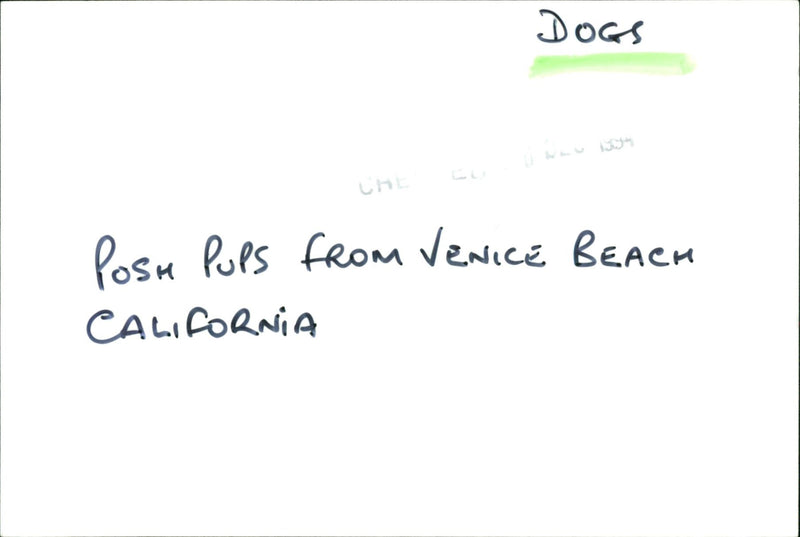 DOGS
1994
POSH PUPS FROM VENICE BEACH
CALIFORNIA